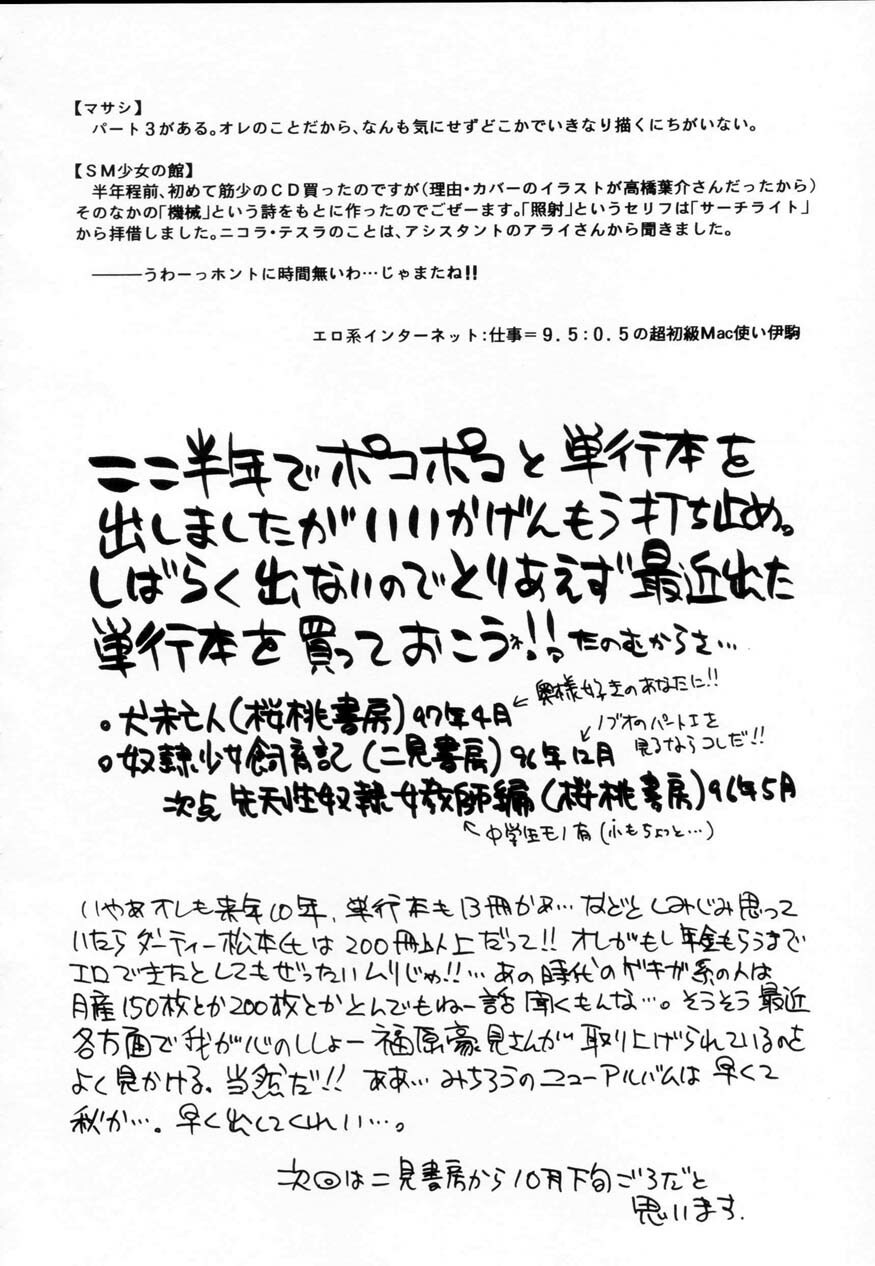 【マサシ】
パート３がある。オレのことだから、なんも気にせずどこかでいきなり描くにちがいない。
【ＳＭ少女の館】
半年程前、初めて筋少のＣＤ買ったのですが（理由・カバーのイラストが高橋葉介さんだったから）
そのなかの「機械」という詩をもとに作ったのでごぜーます。「照射」というセリフは「サーチライト」
から拝借しました。ニコラ・テスラのことは、アシスタントのアライさんから聞きました。
———うわーっホントに時間無いわ…じゃまたね!!
エロ系インターネット：仕事＝９.５：０.５の超初級Mac使い伊駒
ここ半年でポコポコと単行本を
出しましたがいいかげんもう打ち止め。
しばらく出ないのでとりあえず最近出た
単行本を買っておこうネ!!っ たのむからさ…
。犬未亡人（桜桃書房）97年4月 ←奥様好きのあなたに!!
。奴隷少女飼育記（二見書房）96年12月 ←ノブオのパートIを
見るならコレだ!!
次点 先天性奴隷女教師編（桜桃書房）96年5月
←中学生モノ有（小もちょっと…）
いやあオレも来年10年、単行本も13冊かぁ…などとしみじみ思って
いたらダーティー松本氏は200冊以上だって!! オレがもし年金もらうまで
エロで生きたとしてもぜったいムリじゃ!!…あの時代のゲキガ系の人は
月産150枚とか200枚とかとんでもねー話聞くもんな…。そうそう最近
各方面で我が心のししょー福原豪見さんが取り上げられているのを
よく見かける。当然だ!! ああ…みちろうのニューアルバムは早くて
秋か…。早く出してくれい…。
次回は二見書房から10月下旬ごろだと
思います.